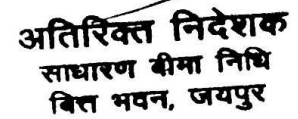 अतिरिक्त निदेशक
साधारण बीमा निधि
बित्त भवन, जयपुर